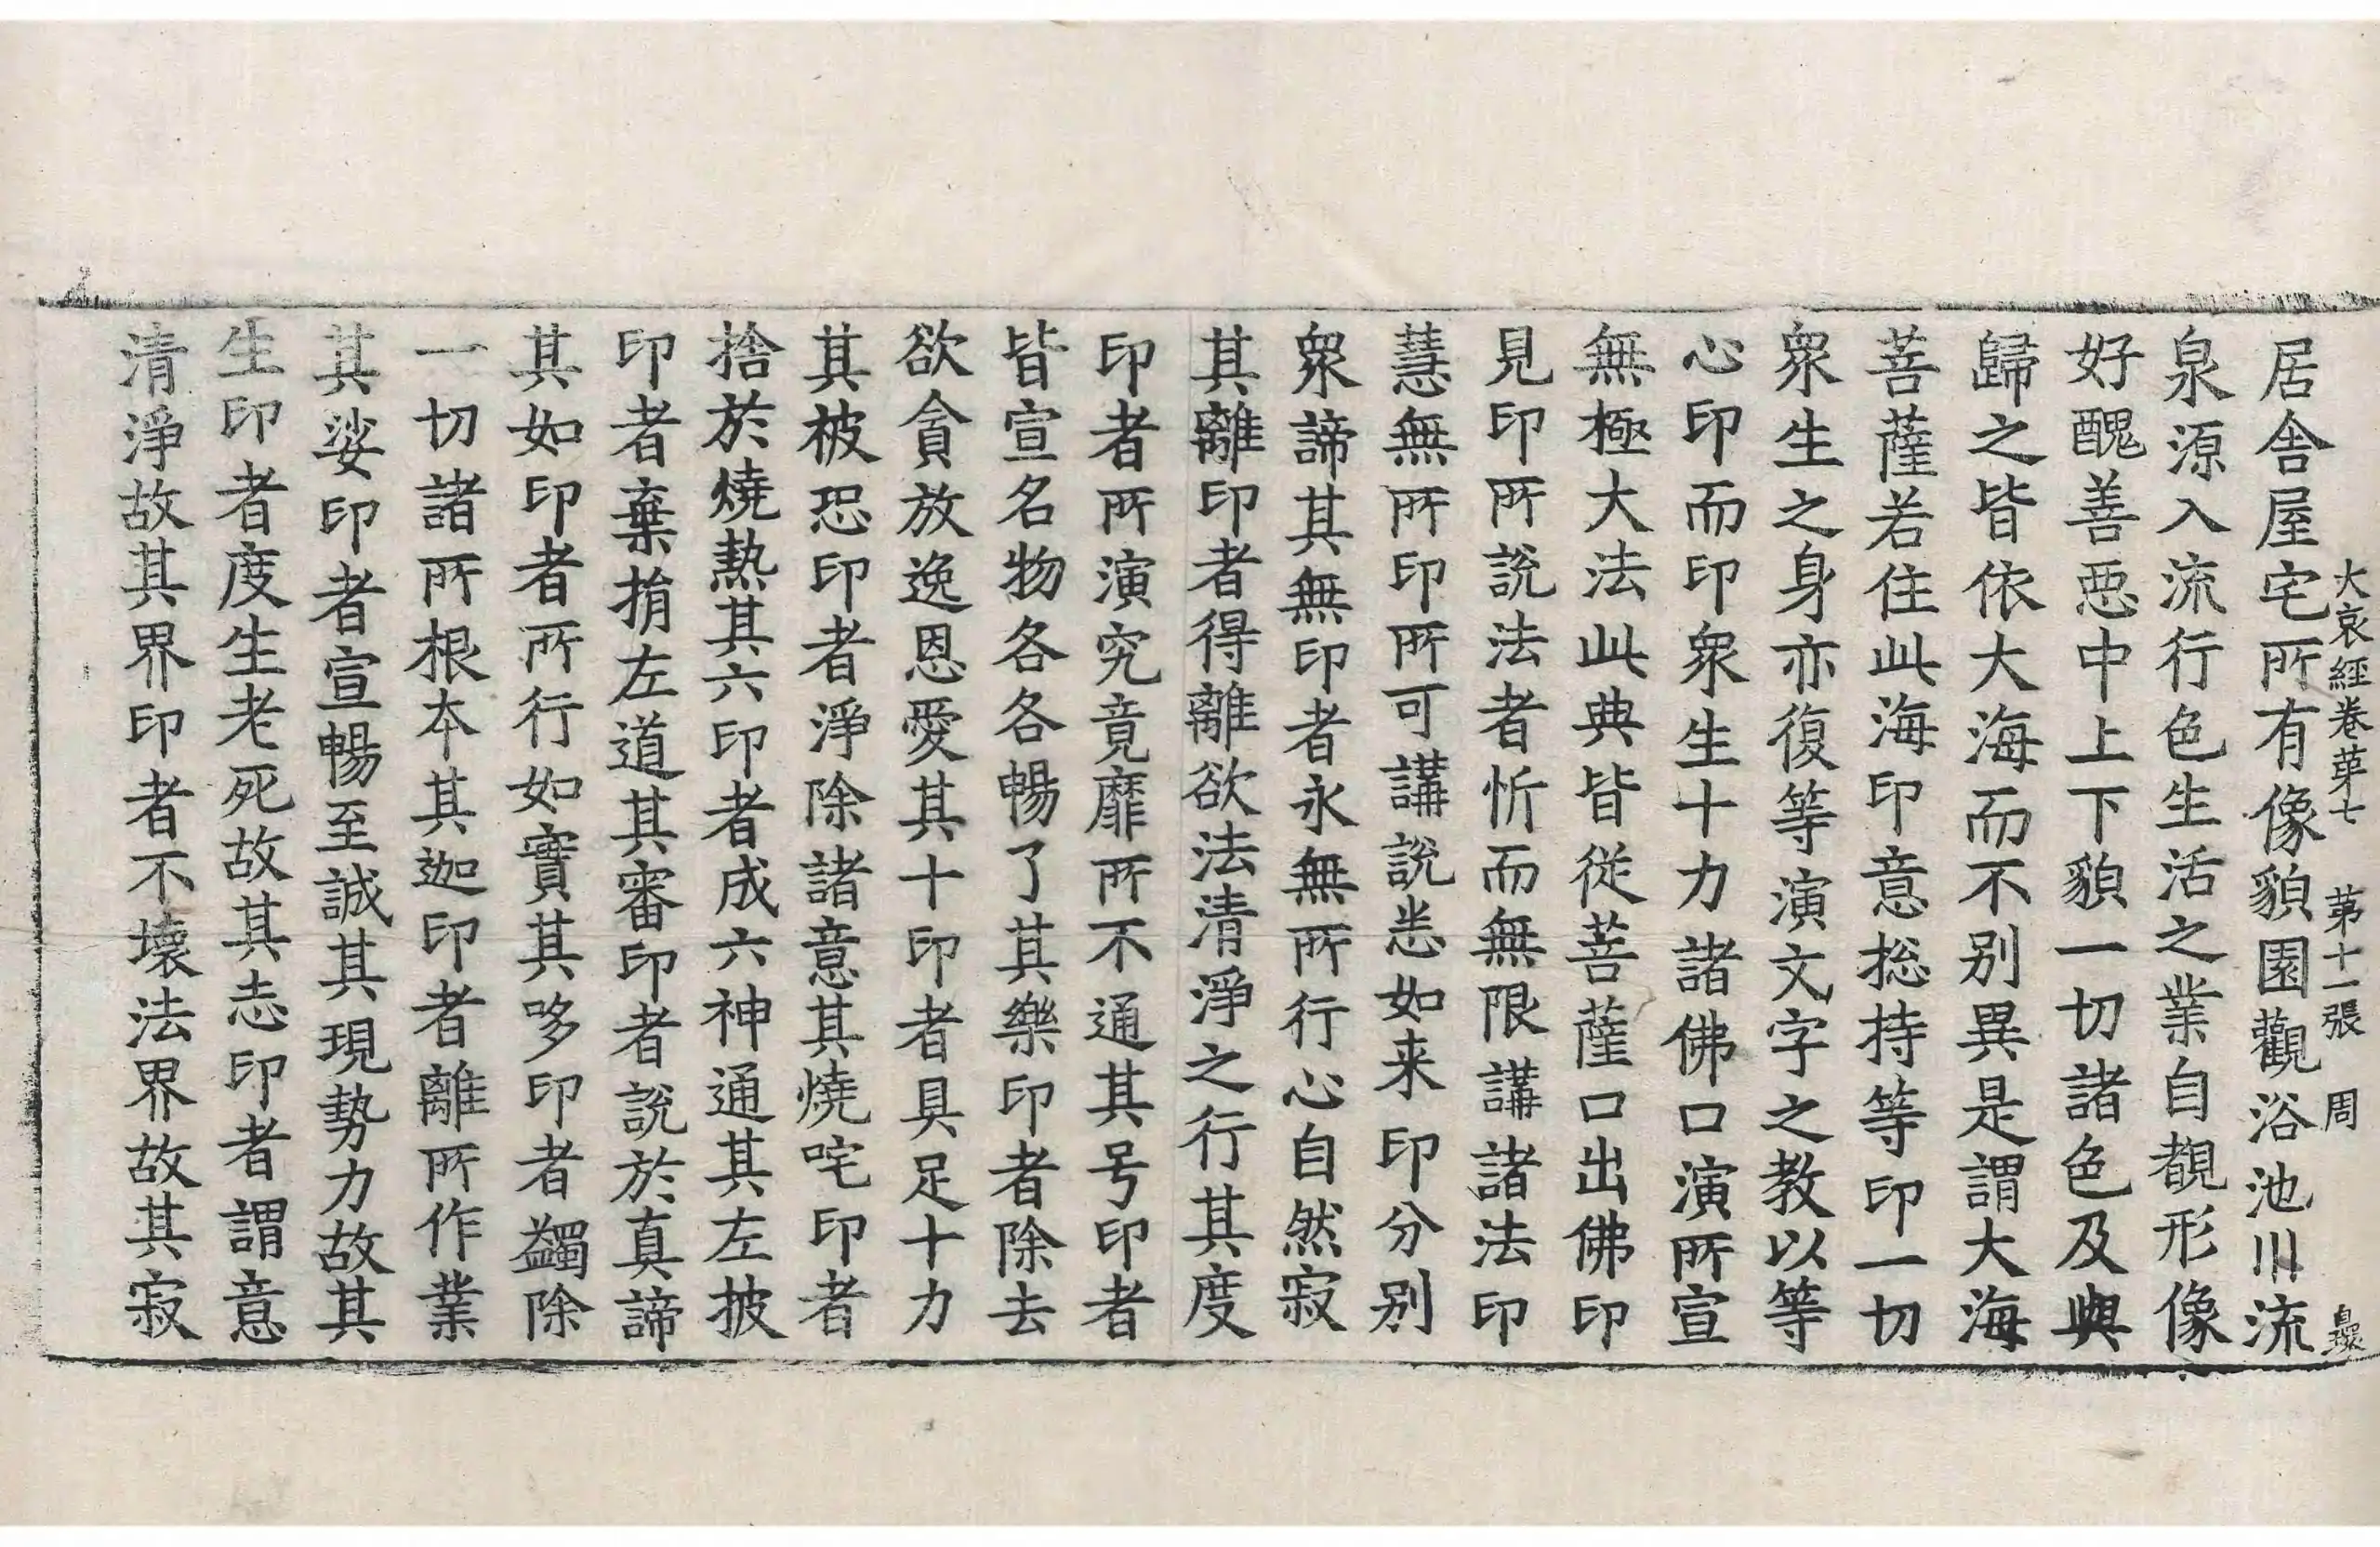 大哀經卷苐七 苐十一張 周
居舎屋宅所有像貌園觀浴池川流
泉源入流行色生活之業自覩形像
好醜善惡中上下貌一切諸色及與
歸之皆依大海而不别異是謂大海
菩薩若住此海印意揔持等印一切
衆生之身亦復等演文字之教以等
心印而印衆生十力諸佛口演所宣
無極大法此典皆從菩薩口出佛印
見印所說法者忻而無限講諸法印
慧無所印所可講說悉如来印分别
衆諦其無印者永無所行心自然寂
其離印者得離欲法清淨之行其度
印者所演究竟靡所不通其号印者
皆宣名物各各暢了其樂印者除去
欲貪放逸恩愛其十印者具足十力
其被恐印者淨除諸意其燒咤印者
捨於燒熱其六印者成六神通其左披
印者棄捐左道其審印者說於真諦
其如印者所行如實其哆印者蠲除
一切諸所根本其迦印者離所作業
其娑印者宣暢至誠其現勢力故其
生印者度生老死故其志印者謂意
清淨故其界印者不壞法界故其寂